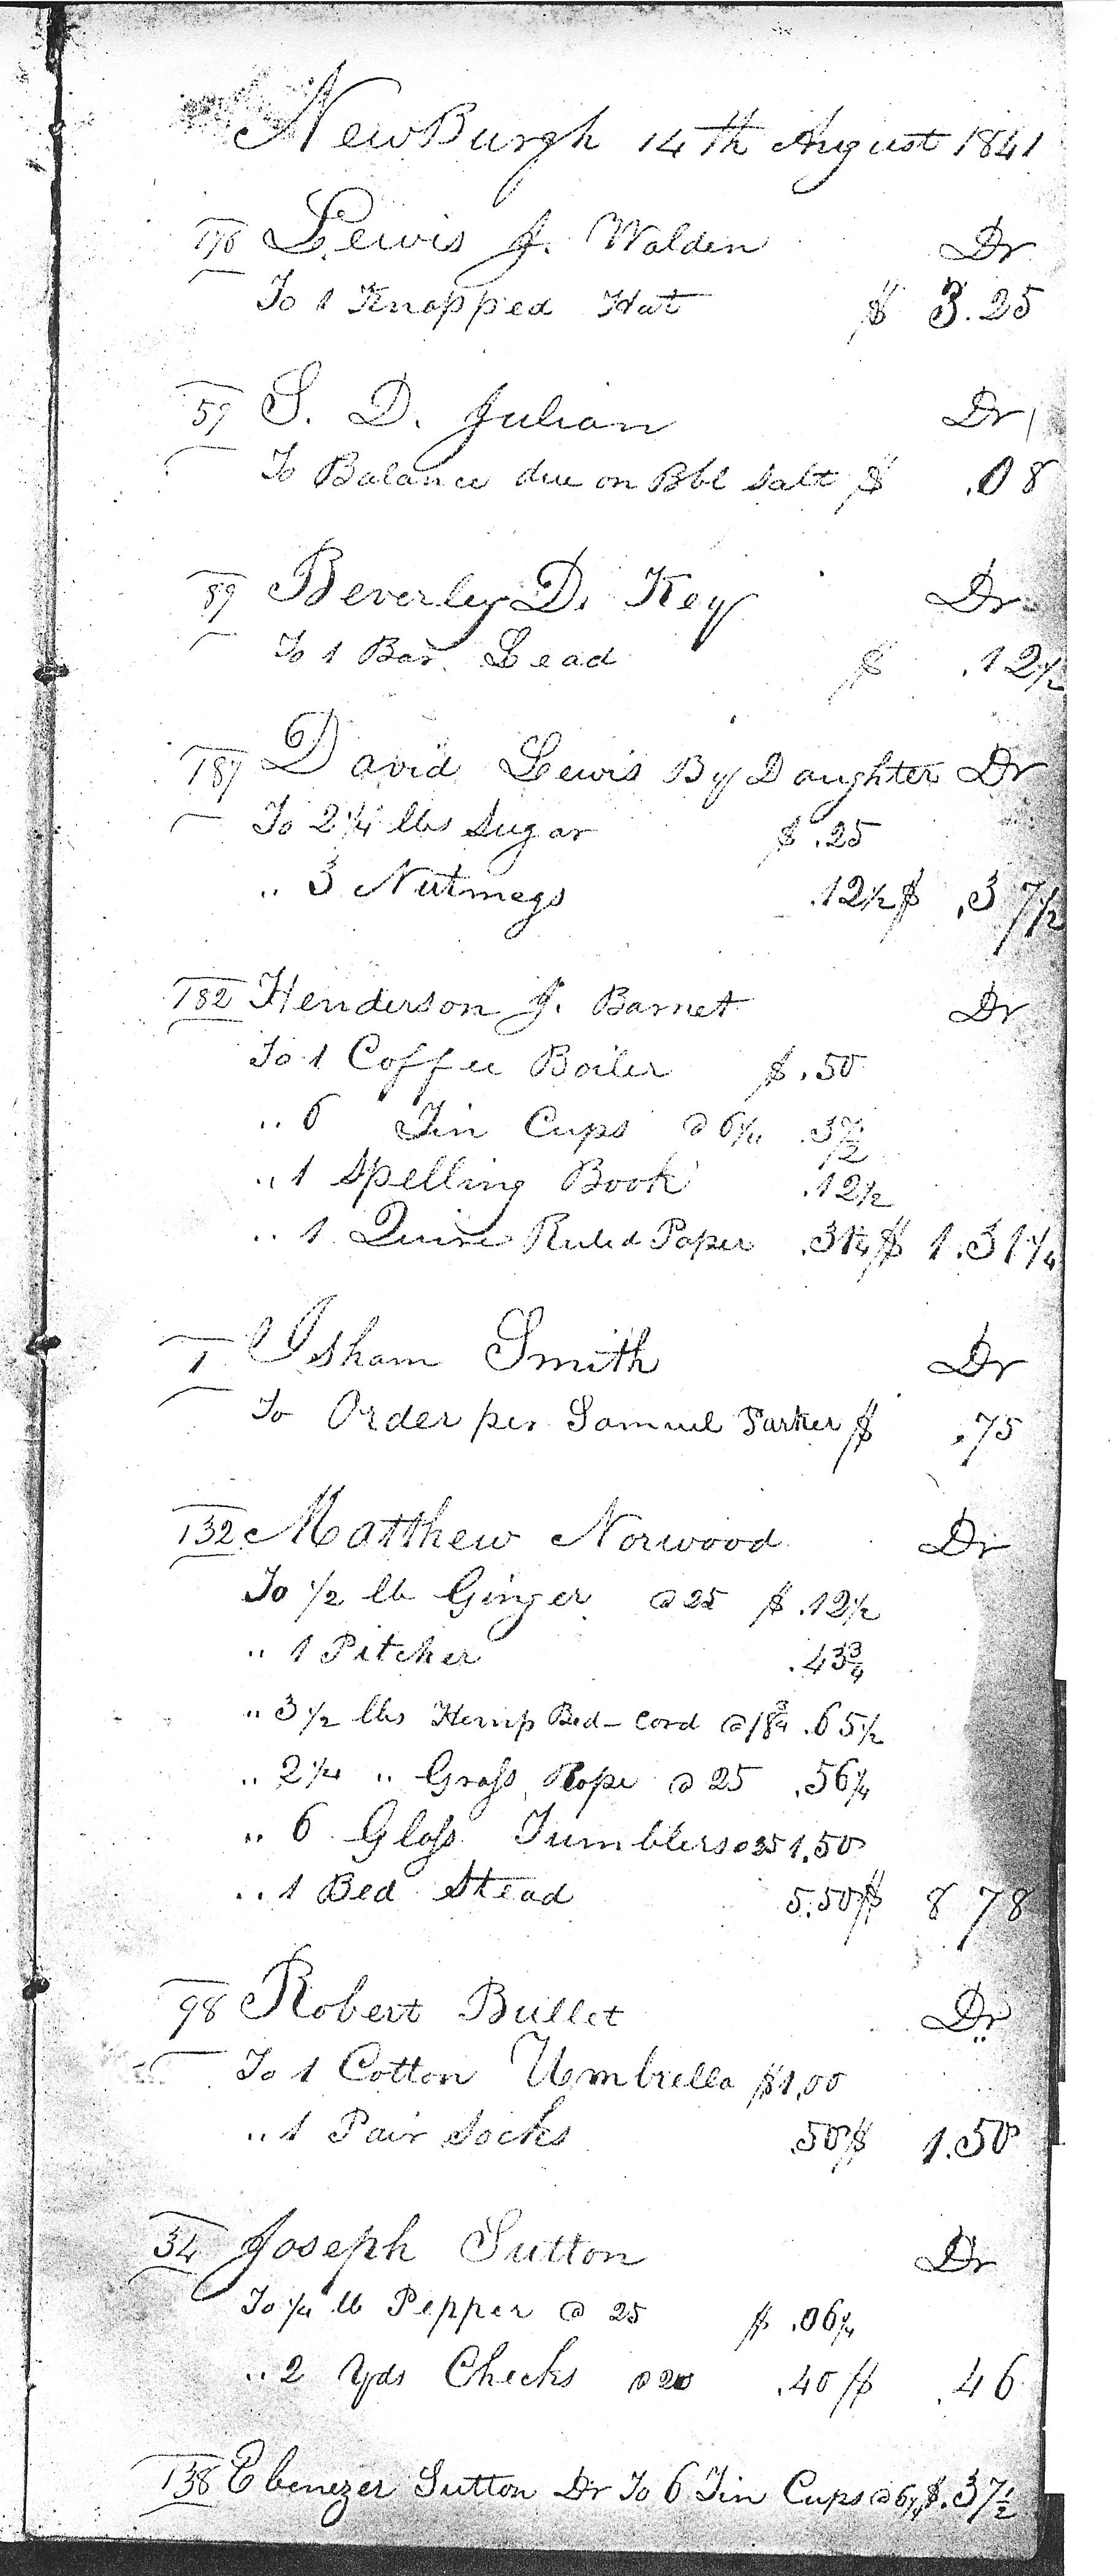 NewBurgh 14th August 1841
176 Lewis J. Walden Dr
To 1 Knapped Hat $ 3.25
59 S. D. Julian Dr
To Balance due on Bbl Salt $ .08
89 Beverley D. Key Dr
To 1 Bar Lead $ .12½
187 David Lewis By Daughter Dr
To 2¼ lbs Sugar $ .25
„ 3 Nutmegs .12½ $ .37½
182 Henderson J. Barnet Dr
To 1 Coffee Boiler $ .50
„ 6 Tin Cups @ 6¼ .37½
„ 1 Spelling Book .12½
„ 1 Quire Ruled Paper .31¼ $ 1.31¼
1 Isham Smith Dr
To Order per Samuel Parker $ .75
132 Matthew Norwood Dr
To ½ lb Ginger @ 25 $ .12½
„ 1 Pitcher .43¾
„ 3½ lbs Hemp Bed-Cord @ 18¾ .65½
„ 2¼ „ Grass Rope @ 25 .56¼
„ 6 Glass Tumblers @ 25 1.50
„ 1 Bed Stead 5.50 $ 8 78
98 Robert Bullet Dr
To 1 Cotton Umbrella $1.00
„ 1 Pair Socks .50 $ 1.50
34 Joseph Sutton Dr
To ¼ lb Pepper @ 25 $ .06¼
„ 2 Yds Checks @ 20 .40 $ .46
138 Ebenezer Sutton Dr To 6 Tin Cups @ 6¼ $ .37½